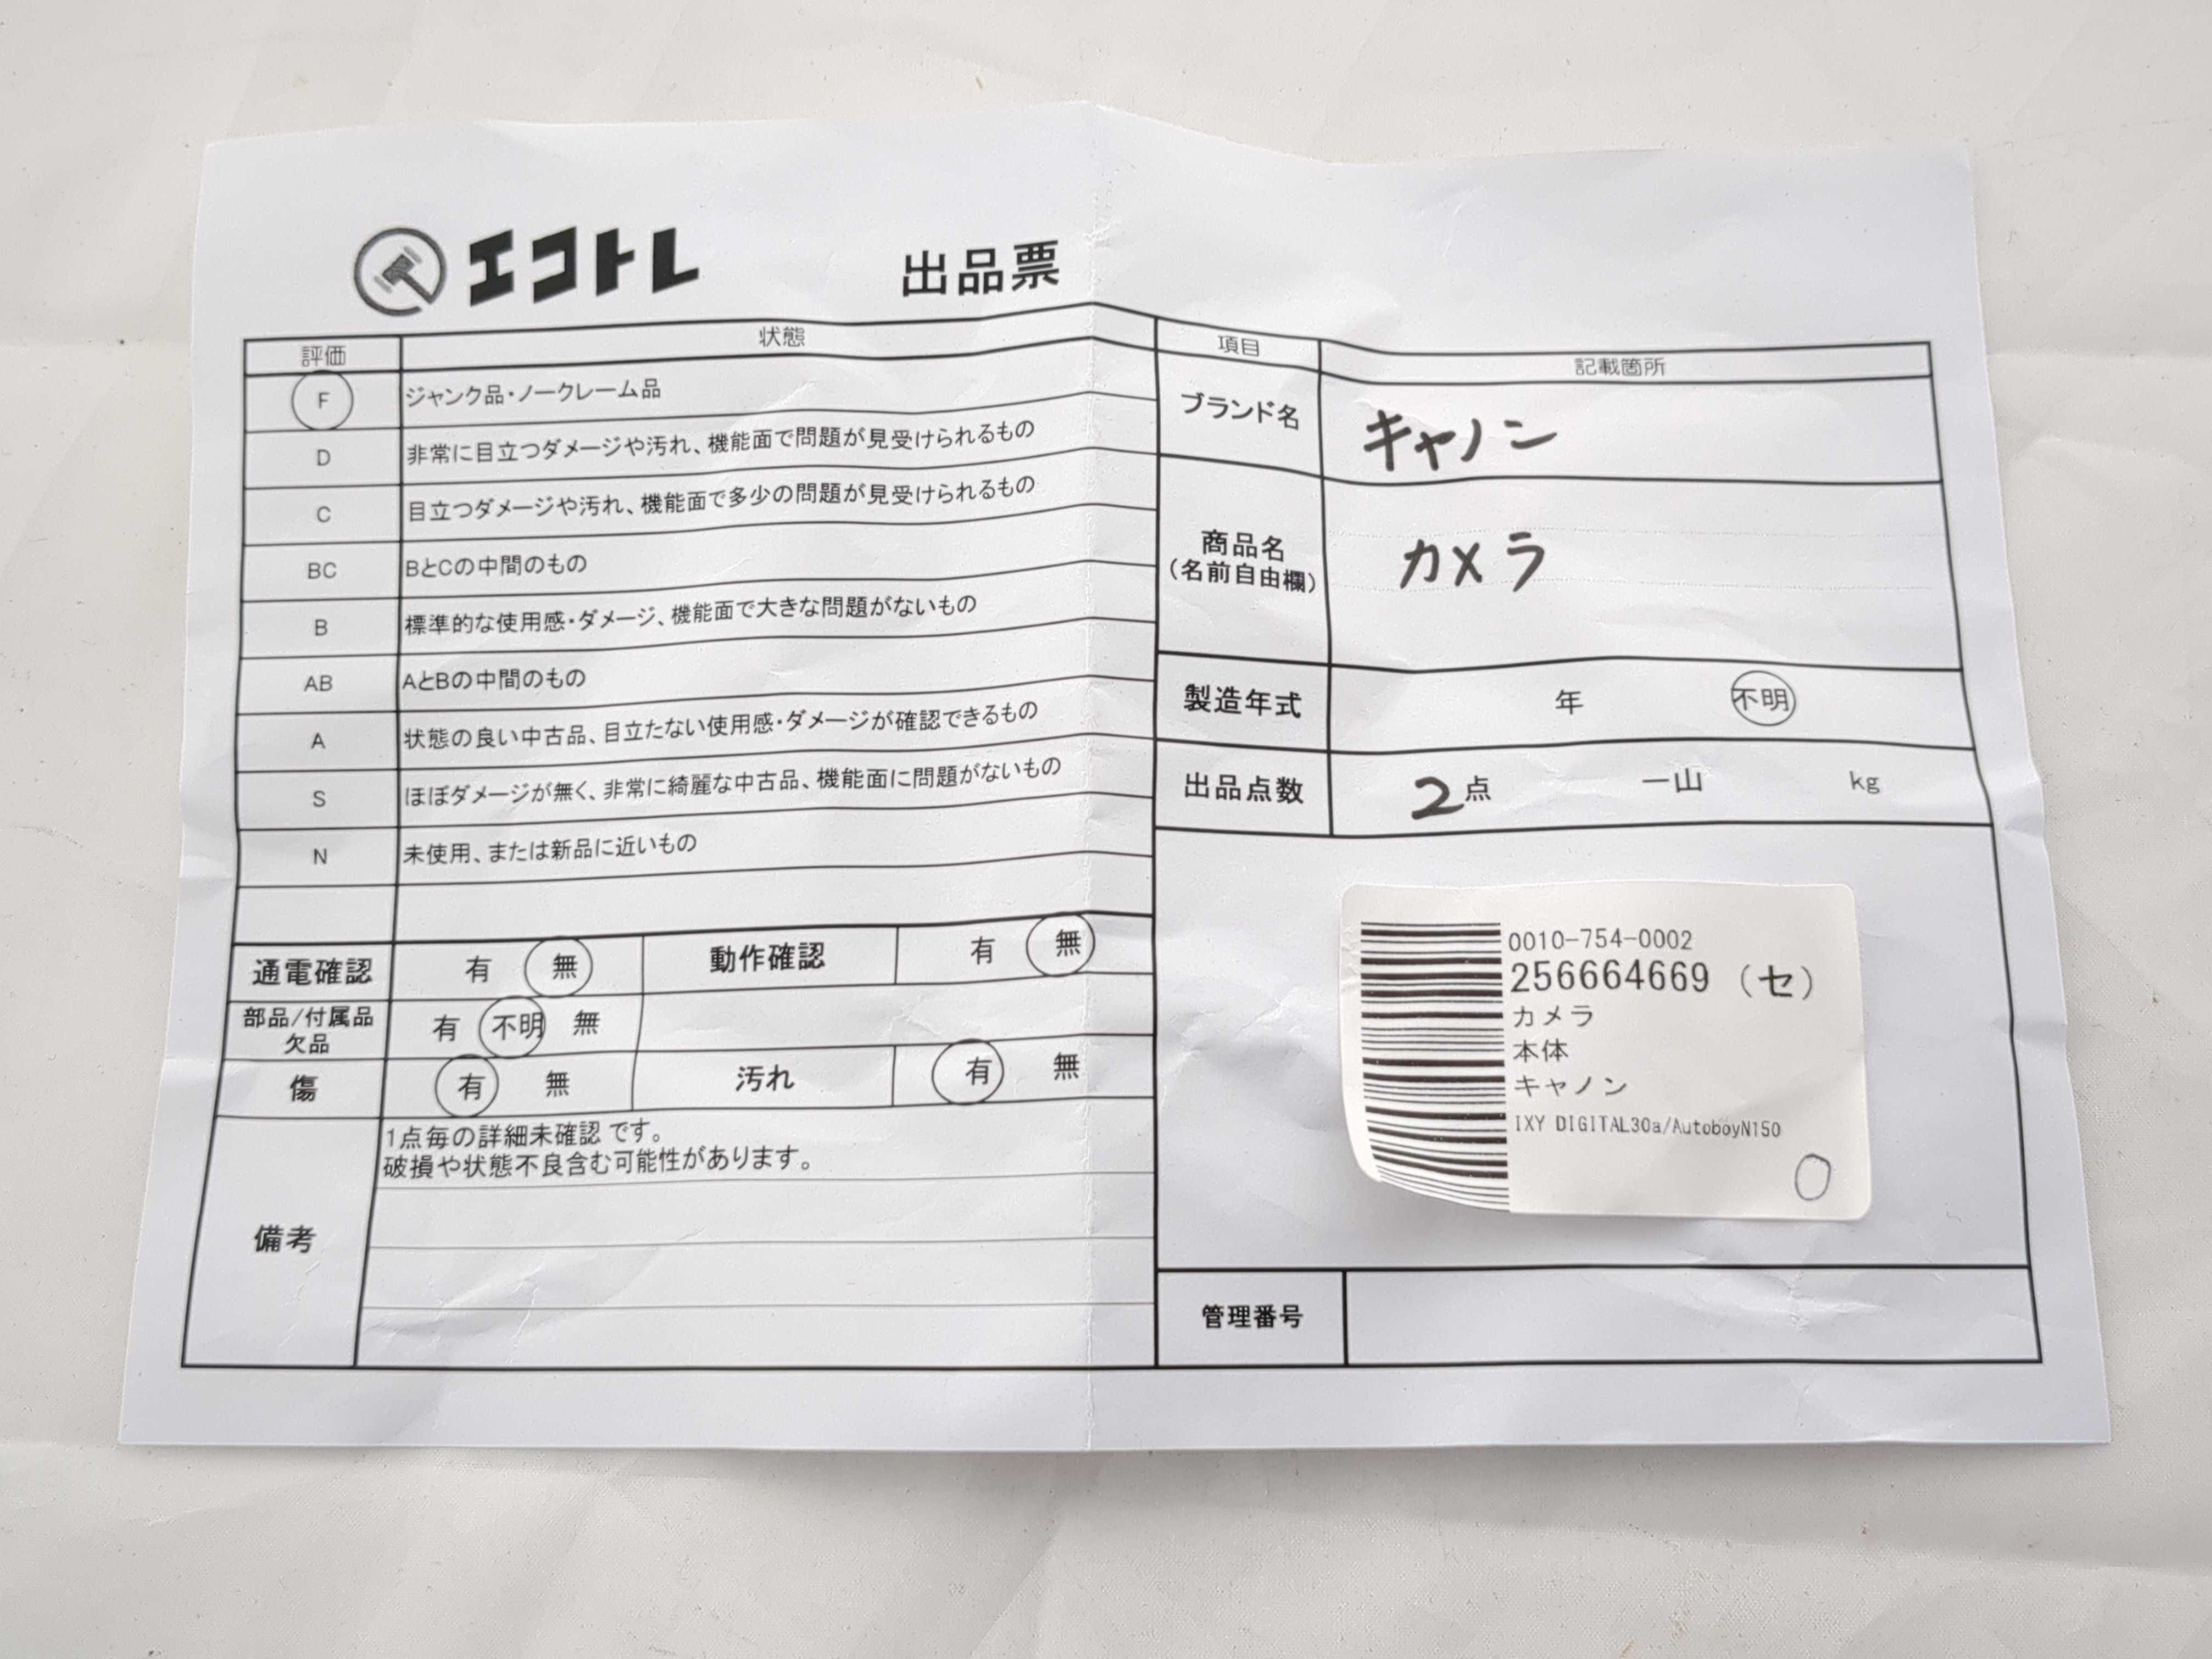 エコトレ
出品票
評価 状態
F ジャンク品・ノークレーム品
D 非常に目立つダメージや汚れ、機能面で問題が見受けられるもの
C 目立つダメージや汚れ、機能面で多少の問題が見受けられるもの
BC BとCの中間のもの
B 標準的な使用感・ダメージ、機能面で大きな問題がないもの
AB AとBの中間のもの
A 状態の良い中古品、目立たない使用感・ダメージが確認できるもの
S ほぼダメージが無く、非常に綺麗な中古品、機能面に問題がないもの
N 未使用、または新品に近いもの
通電確認 有 無 動作確認 有 無
部品/付属品
欠品
有 不明 無
傷 有 無 汚れ 有 無
備考
1点毎の詳細未確認 です。
破損や状態不良含む可能性があります。
項目 記載箇所
ブランド名 キャノン
商品名
(名前自由欄)
カメラ
製造年式 年 不明
出品点数 2点 一山 kg
0010-754-0002
256664669 (セ)
カメラ
本体
キャノン
IXY DIGITAL30a/AutoboyN150
管理番号